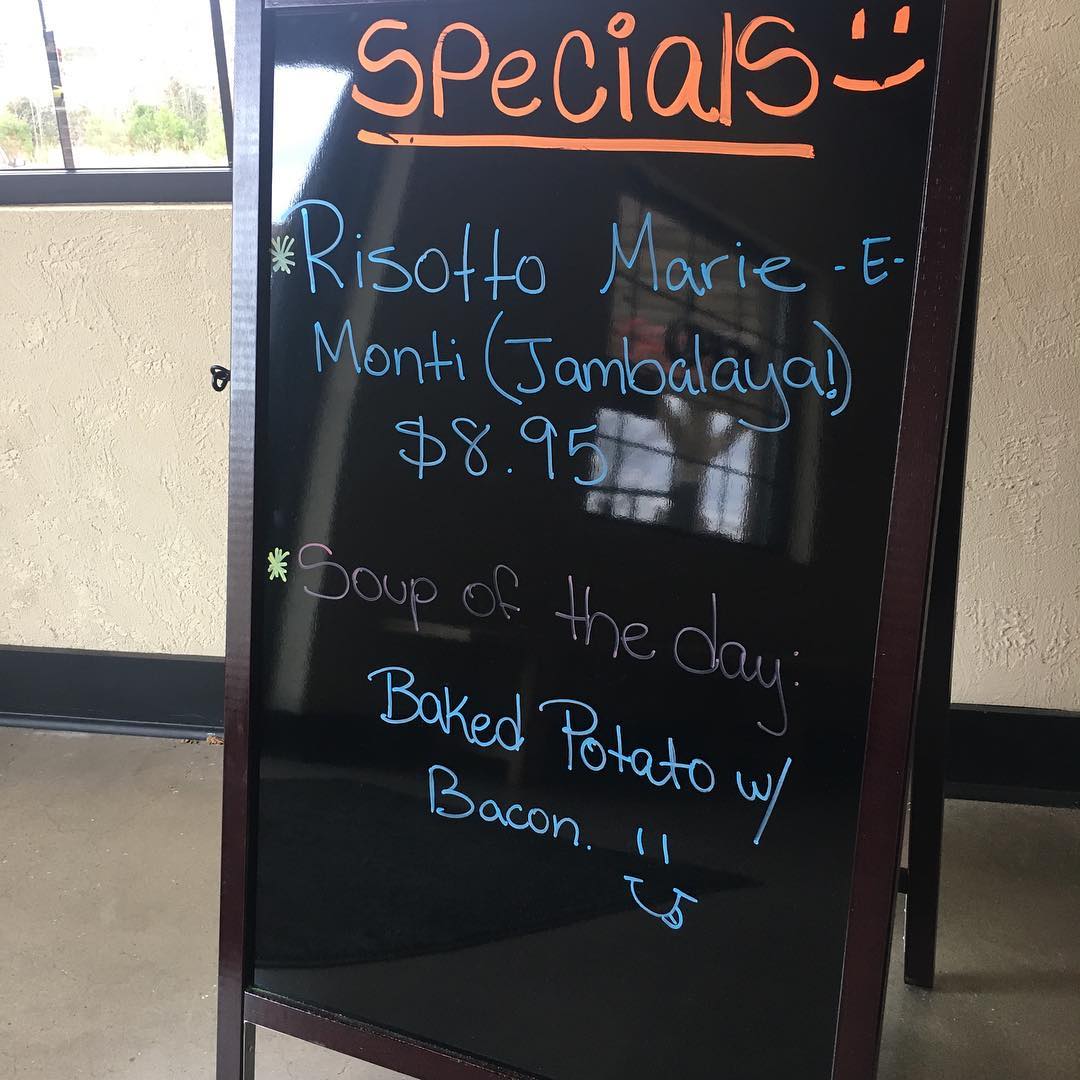 Specials
* Risotto Marie -E-
Monti (Jambalaya!)
$8.95
* Soup of the day:
Baked Potato w/
Bacon.